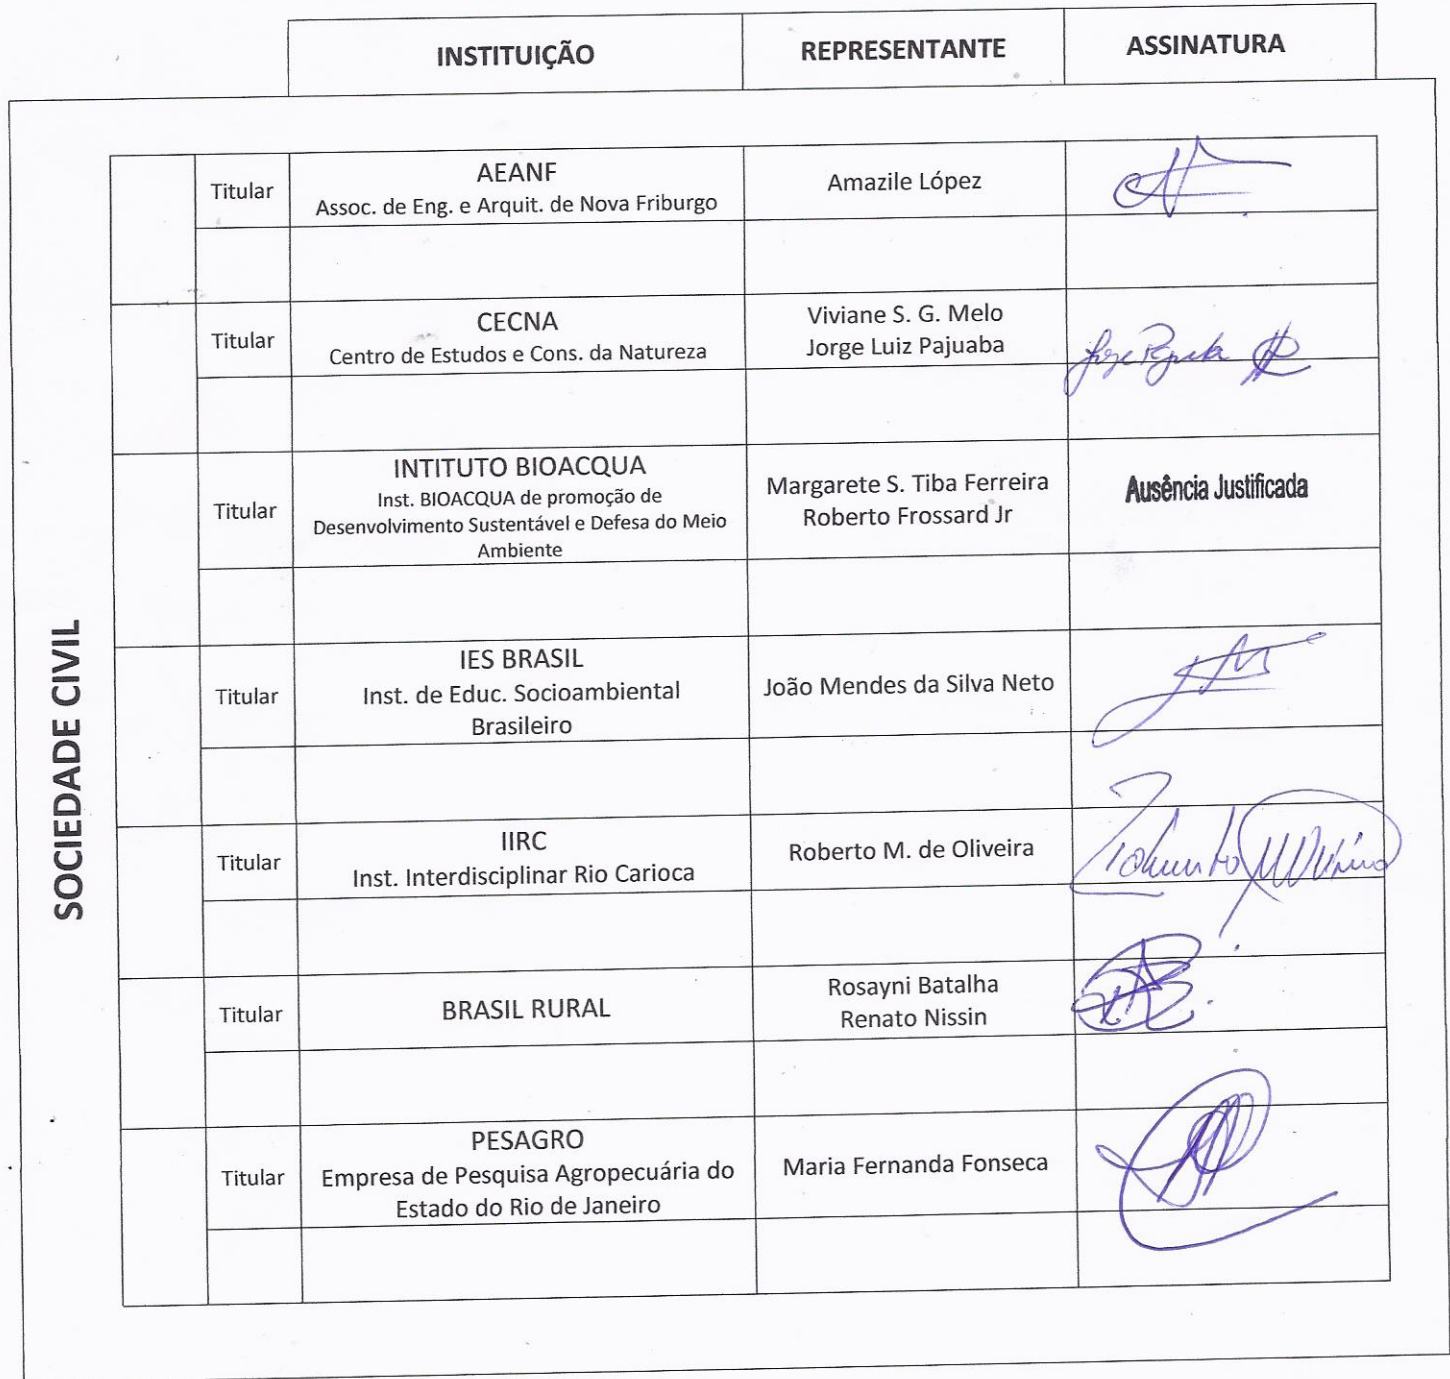 INSTITUIÇÃO
REPRESENTANTE
ASSINATURA
SOCIEDADE CIVIL
Titular
AEANF
Assoc. de Eng. e Arquit. de Nova Friburgo
Amazile López
Titular
CECNA
Centro de Estudos e Cons. da Natureza
Viviane S. G. Melo
Jorge Luiz Pajuaba
Titular
INTITUTO BIOACQUA
Inst. BIOACQUA de promoção de
Desenvolvimento Sustentável e Defesa do Meio
Ambiente
Margarete S. Tiba Ferreira
Roberto Frossard Jr
Ausência Justificada
Titular
IES BRASIL
Inst. de Educ. Socioambiental
Brasileiro
João Mendes da Silva Neto
Titular
IIRC
Inst. Interdisciplinar Rio Carioca
Roberto M. de Oliveira
Titular
BRASIL RURAL
Rosayni Batalha
Renato Nissin
Titular
PESAGRO
Empresa de Pesquisa Agropecuária do
Estado do Rio de Janeiro
Maria Fernanda Fonseca